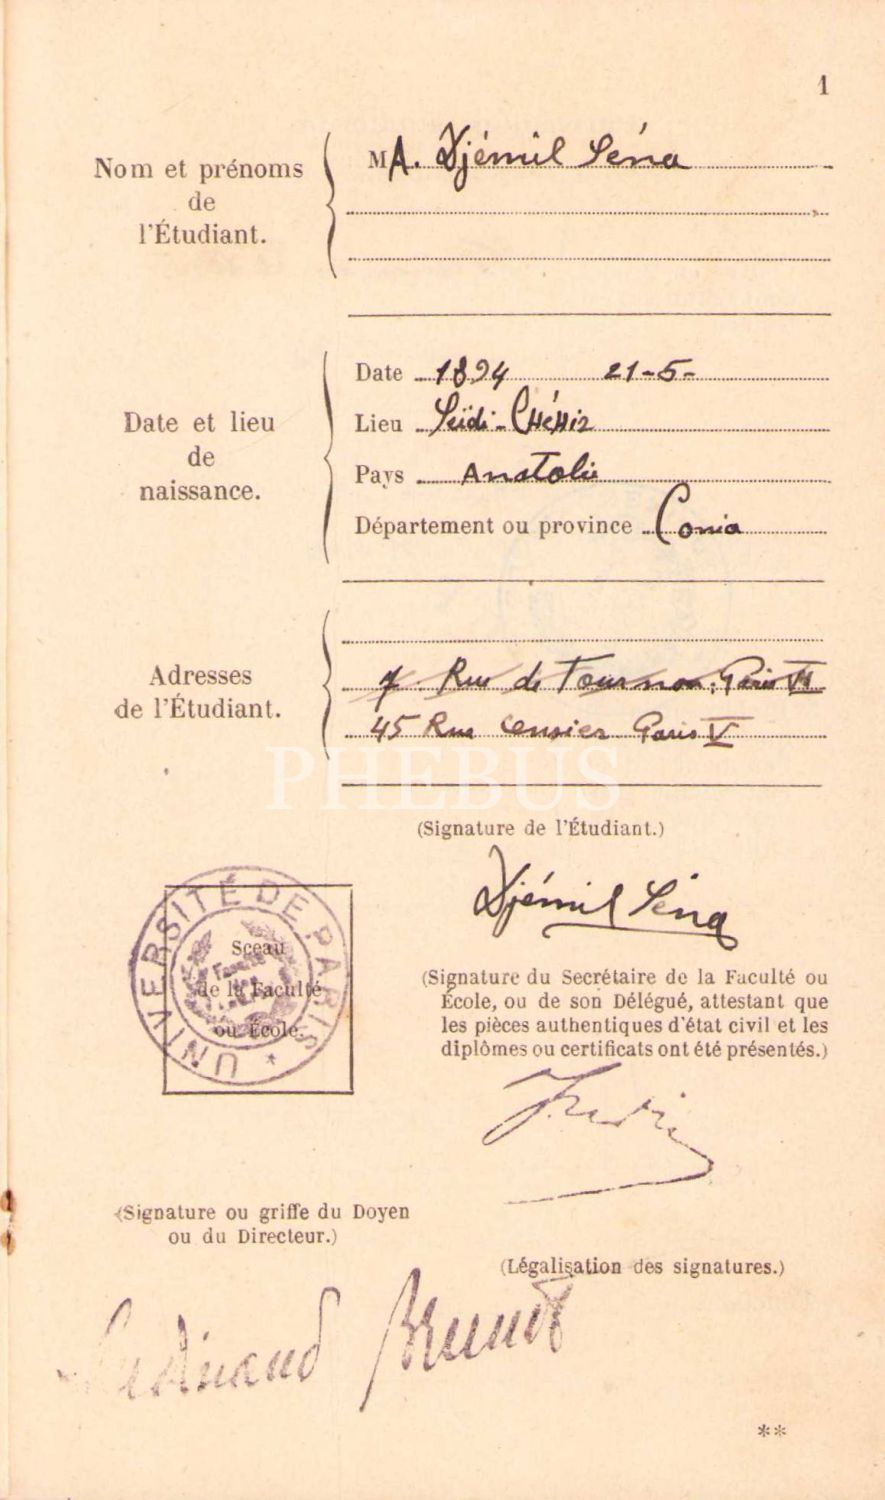 1
Nom et prénoms
de
l'Étudiant.
M A. Djémil Séna
Date et lieu
de
naissance.
Date 1894 21-5-
Lieu Seïdi-Chéhir
Pays Anatolie
Département ou province Conia
Adresses
de l'Étudiant.
7 Rue de Tournon, Paris VI
45 Rue Censier Paris V
PHEBUS
(Signature de l'Étudiant.)
Djémil Séna
UNIVERSITÉ DE PARIS
Sceau
de la Faculté
ou École.
(Signature du Secrétaire de la Faculté ou
École, ou de son Délégué, attestant que
les pièces authentiques d'état civil et les
diplômes ou certificats ont été présentés.)
(Signature ou griffe du Doyen
ou du Directeur.)
(Légalisation des signatures.)
Ferdinand Brunot
**